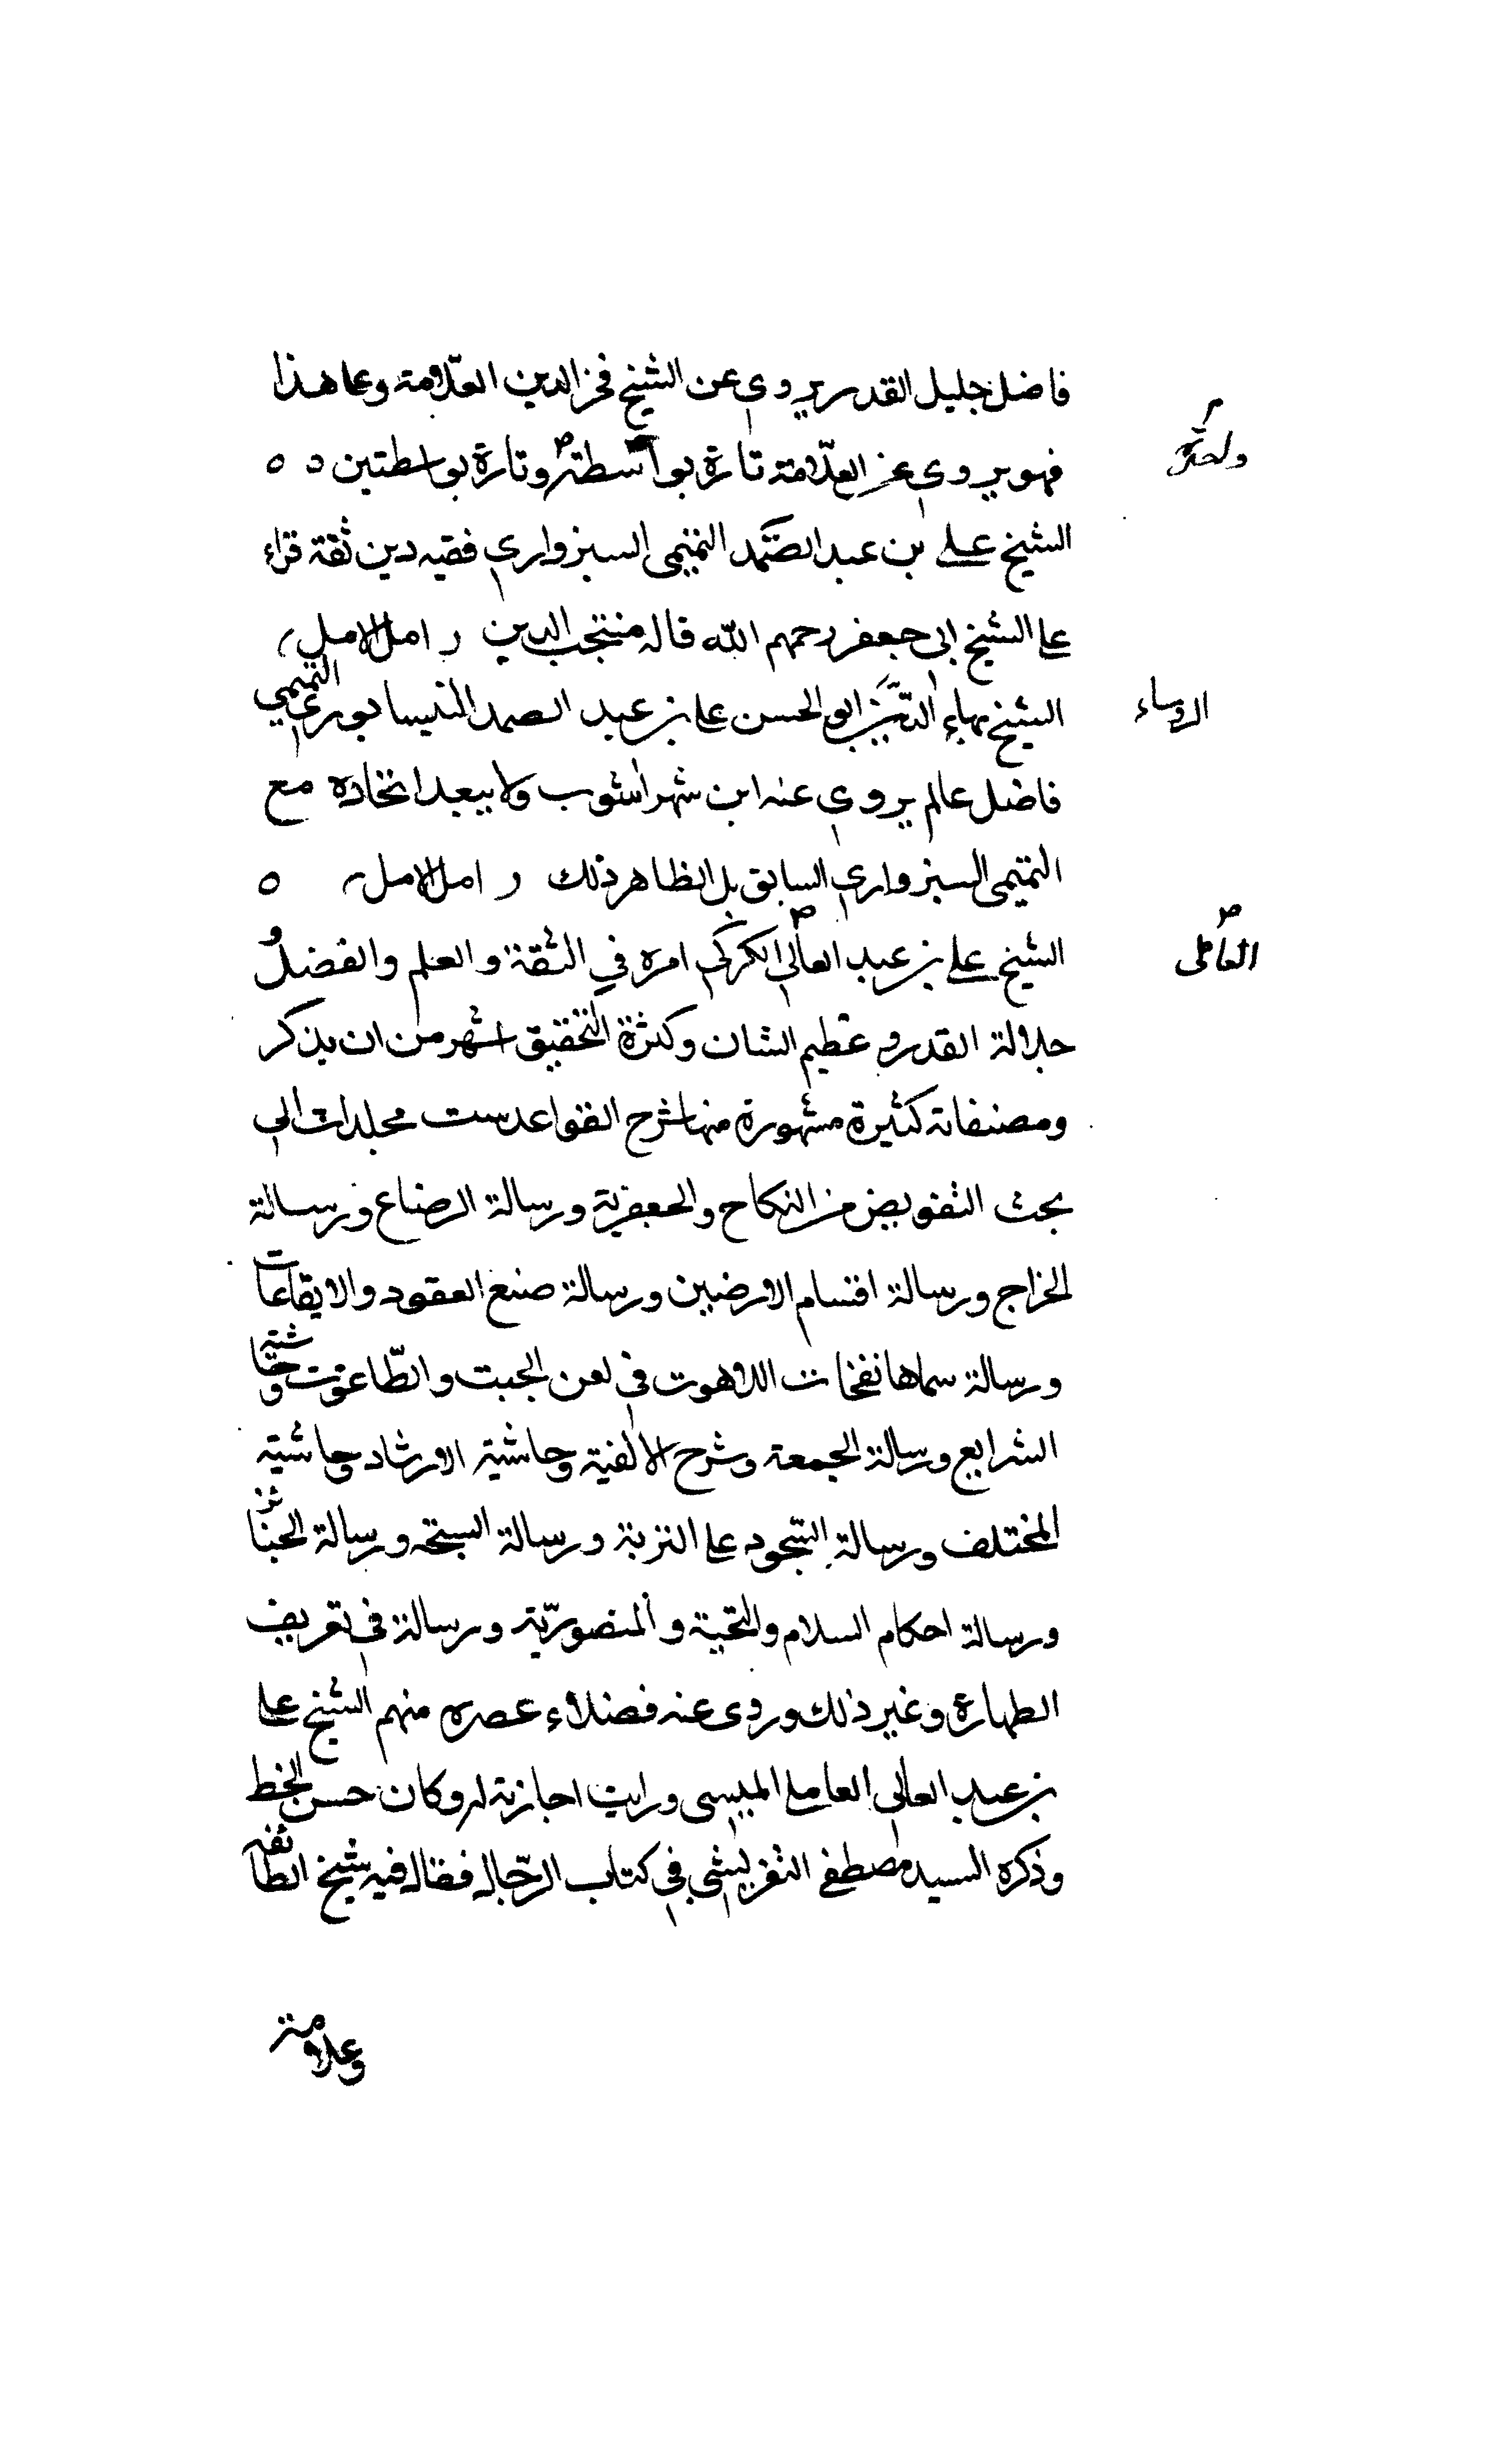 فاضل جليل القدر يروي عن الشيخ فخر الدين العلّامة وعلى هذا
فهو يروي عن العلّامة تارة بواسطة وتارة بواسطتين ٥ ٥
واحدة
الشيخ علي بن عبد الصّمد التميمي السبزواري فقيه دين ثقة قراء
على الشيخ ابى جعفر رحمهم الله قاله منتجب الدين ر امل الامل
الشيخ بهاء الدّين ابو الحسن على بن عبد الصمد النيسابوري التميمي
الروساء
فاضل عالم يروي عنه ابن شهراشوب ولا يبعد اتحاده مع
التميمى السبزواري السابق بل الظاهر ذلك ر امل الامل ٥
الشيخ علي بن عبد العالي الكركي امره في الثقة والعلم والفضل و
العاملى
جلالة القدر و عظيم الشان وكثرة التحقيق اشهر من ان يذكر
ومصنفاته كثيرة مشهورة منها شرح القواعد ست مجلدات الى
بحث التفويض من النكاح والجعفرية ورسالة الرضاع ورسالة
الخراج ورسالة اقسام الارضين ورسالة صيغ العقود والايقاعات
ورسالة سماها نفخات اللاهوت في لعن الجبت والطّاغوت وحاشية
الشرايع ورسالة الجمعة وشرح الالفية وحاشية الارشاد وحاشية
المختلف ورسالة السّجود على التربة ورسالة السبحة ورسالة الجنائز
ورسالة احكام السلام والتحية والمنصوريّة ورسالة في تعريف
الطهارة وغير ذلك وروى عنه فضلاء عصره منهم الشيخ على
بن عبد العالي العاملي الميسي ورايت اجازته له وكان حسن الخط
وذكره السيد مصطفى التفريشي في كتاب الرّجال فقال فيه شيخ الطائفة
وعلامة